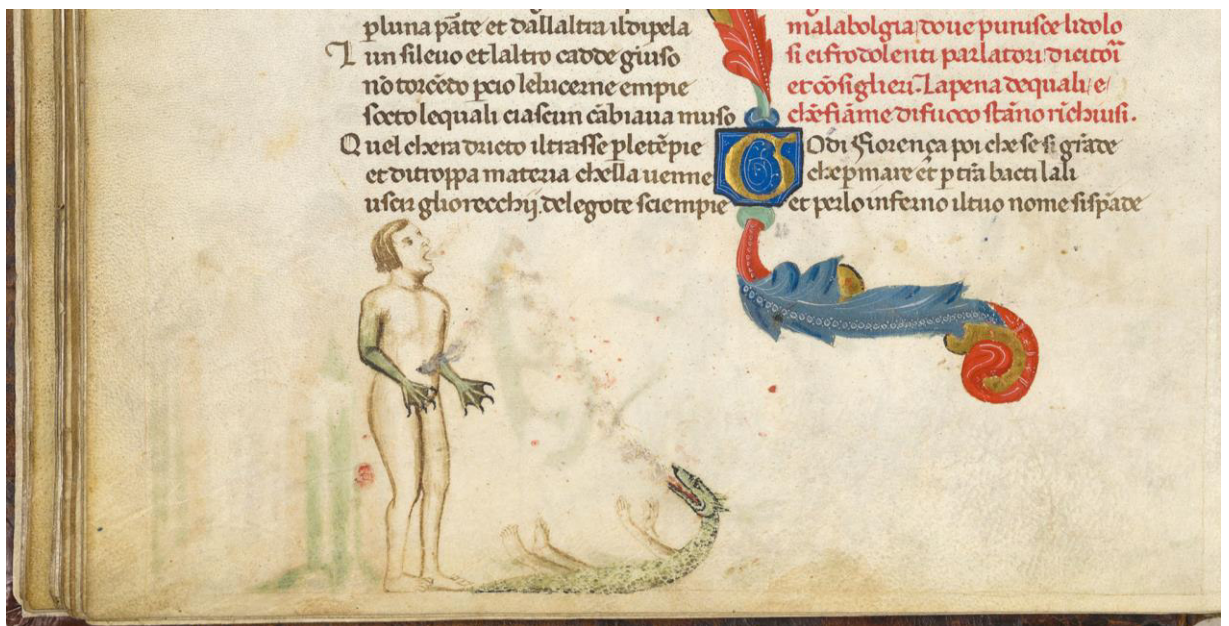 pluna pãte et dallaltra ildipela
L un sileuo et laltro cadde giuso
nõ torcẽdo pcio lelucerne empie
socto lequali ciascun cãbiaua muso
Q uel chera dricto iltrasse pletẽpie
et ditroppa materia chella uenne
uscir gliorecchij delegote sciempie
malabolgia doue punisce lidolo
si et frodolenti parlatori dicitori
et cõsiglieri. Lapena dequali / e /
chẽ fiãme difuoco stãno richiusi.
G Odi fiorença poi che se si grãde
che p mare et p tr̃a bacti lali
et perlo inferno iltuo nome sispãde